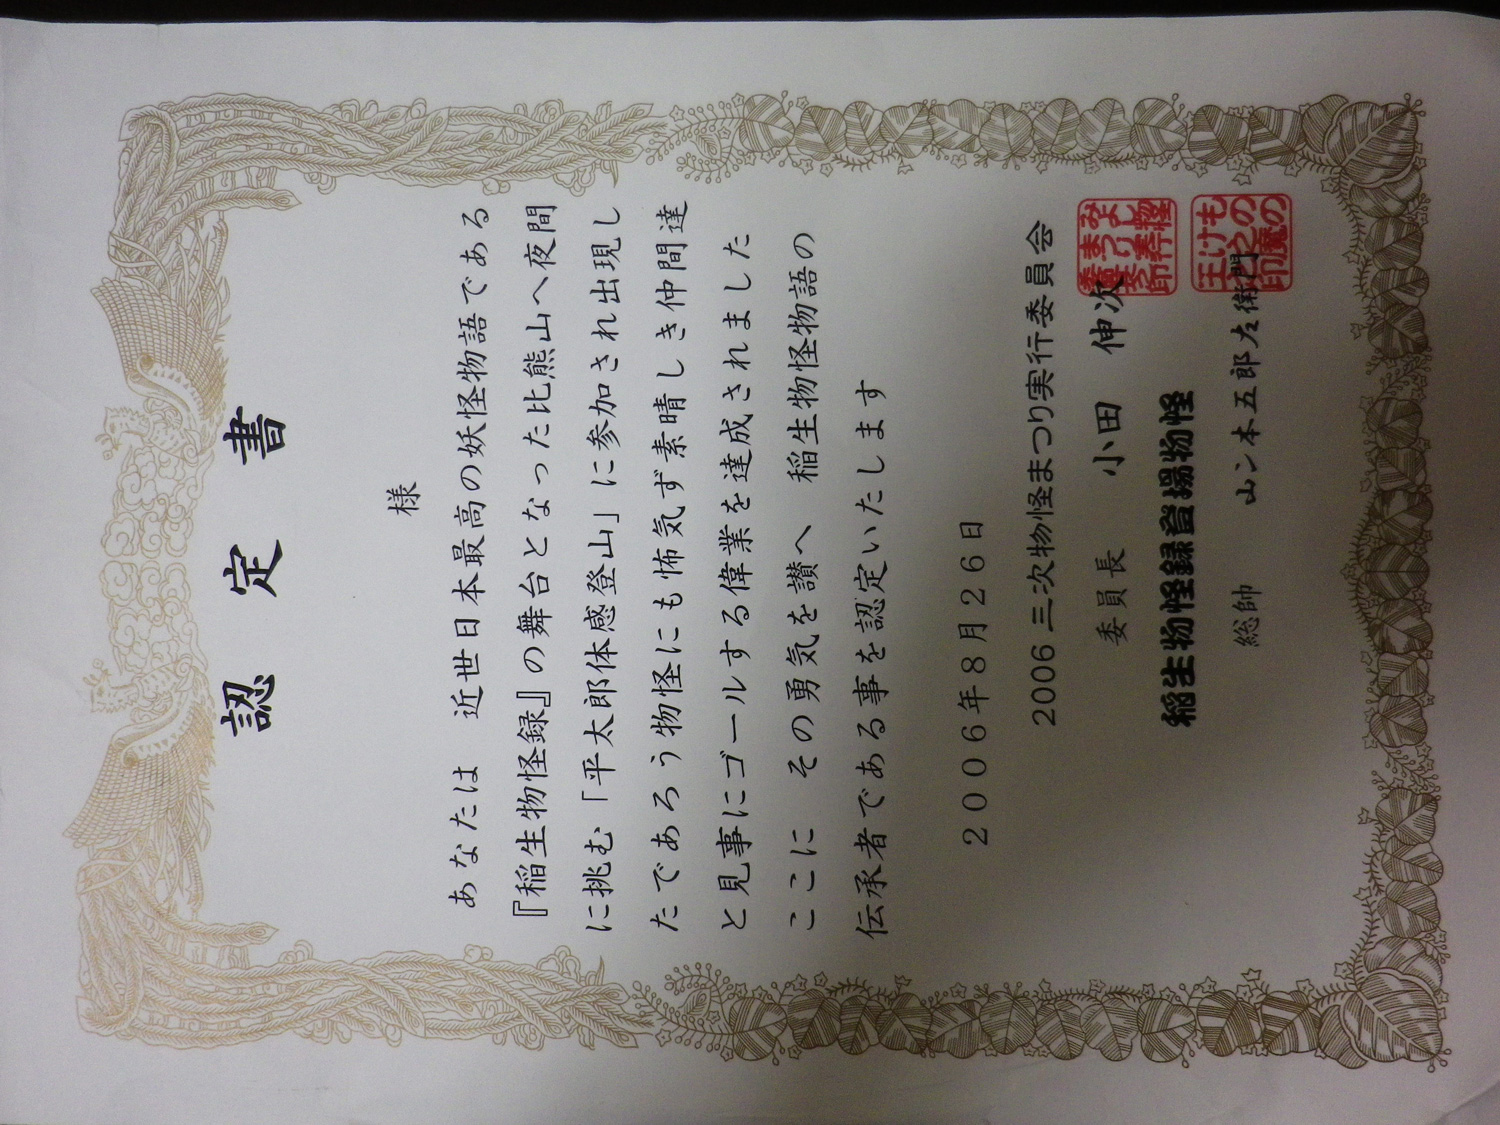 認定書
様
あなたは　近世日本最高の妖怪物語である
『稲生物怪録』の舞台となった比熊山へ夜間
に挑む「平太郎体感登山」に参加され出現し
たであろう物怪にも怖気ず素晴しき仲間達
と見事にゴールする偉業を達成されました
ここに　その勇気を讃へ　稲生物怪物語の
伝承者である事を認定いたします
２００６年８月２６日
2006 三次物怪まつり実行委員会
委員長　小田　伸次
稲生物怪録登場物怪
総帥　山ン本五郎左衛門